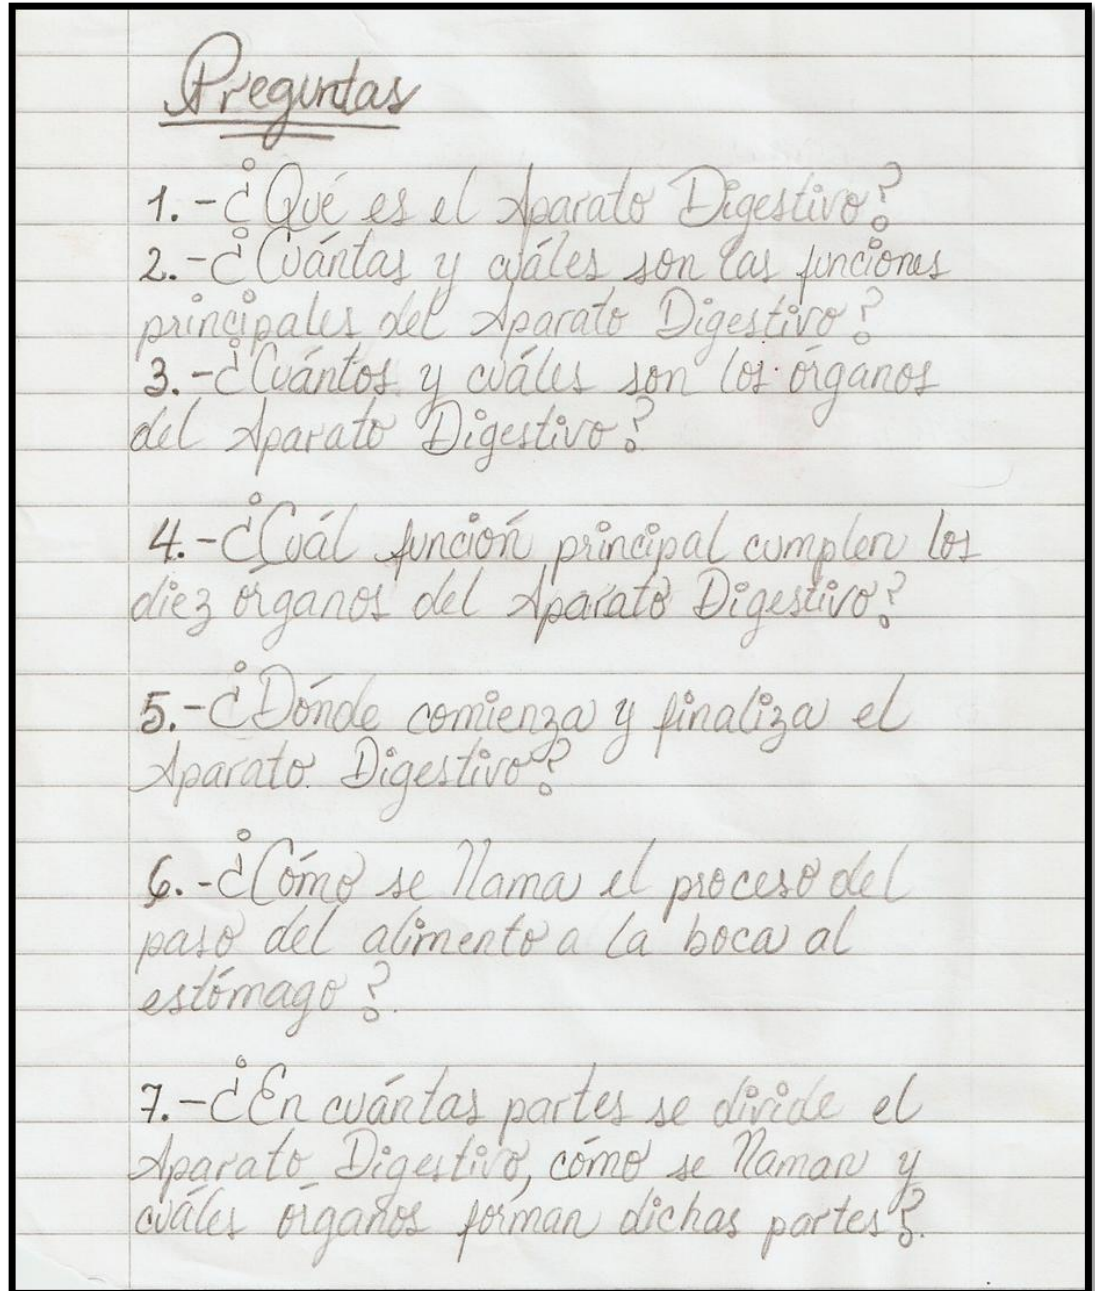 Preguntas
1.-¿Qué es el Aparato Digestivo?
2.-¿Cuántas y cuáles son las funciones
principales del Aparato Digestivo?
3.-¿Cuántos y cuáles son los órganos
del Aparato Digestivo?
4.-¿Cuál función principal cumplen los
diez órganos del Aparato Digestivo?
5.-¿Dónde comienza y finaliza el
Aparato Digestivo?
6.-¿Cómo se llama el proceso del
paso del alimento a la boca al
estómago?
7.-¿En cuántas partes se divide el
Aparato Digestivo, cómo se llaman y
cuáles órganos forman dichas partes?